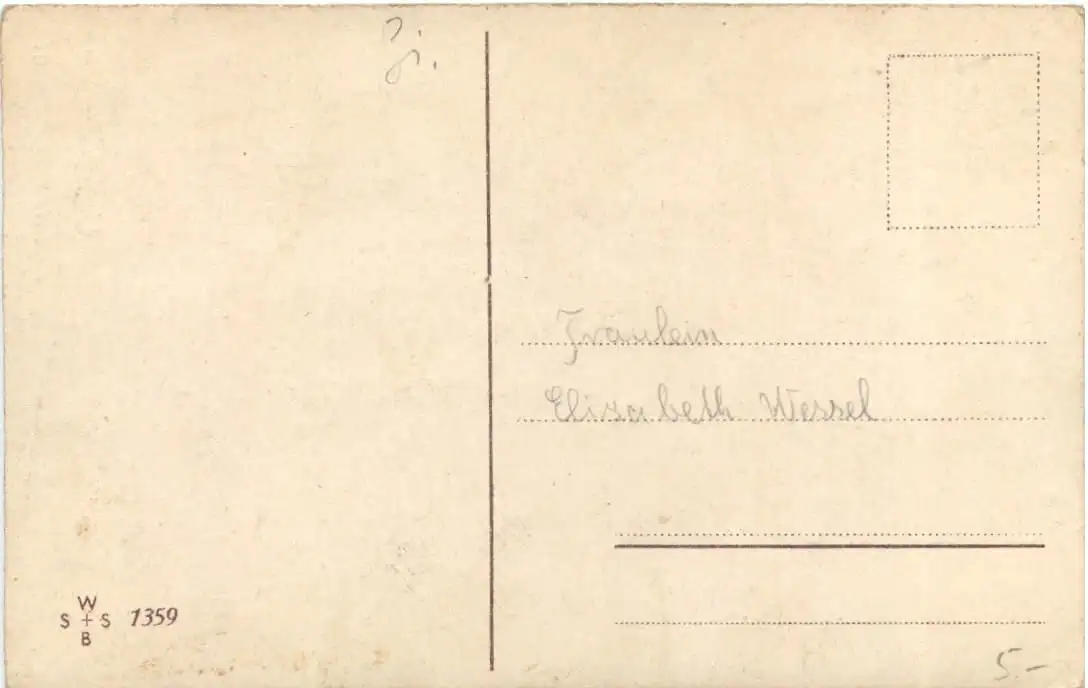 Fräulein
Elisabeth Wessel
W
S + S 1359
B
5.-